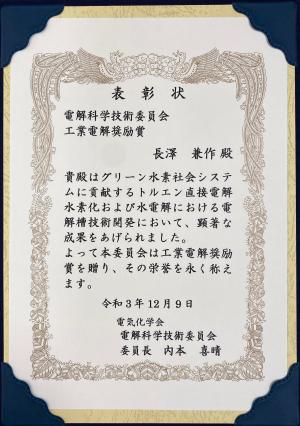 表彰状
電解科学技術委員会
工業電解奨励賞
長澤 兼作 殿
貴殿はグリーン水素社会システ
ムに貢献するトルエン直接電解
水素化および水電解における電
解槽技術開発において、顕著な
成果をあげられました。
よって本委員会は工業電解奨励
賞を贈り、その栄誉を永く称え
ます。
令和3年12月9日
電気化学会
電解科学技術委員会
委員長 内本 喜晴